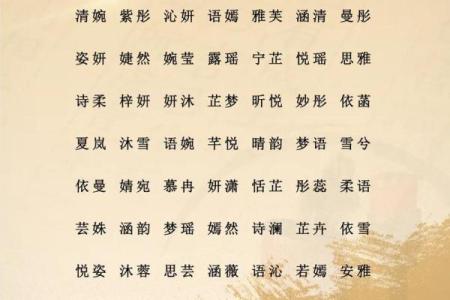 清婉 紫彤 沁妍 语嫣 雅芙 涵清 曼彤
姿妍 婕然 婉莹 露瑶 宁芷 悦瑶 思雅
诗柔 梓妍 妍沐 芷梦 昕悦 妙彤 依菡
夏岚 沐雪 语婉 芊悦 晴韵 梦语 雪兮
依曼 婧宛 慕冉 妍潇 恬芷 彤蕊 柔语
芸姝 涵韵 梦瑶 嫣然 诗澜 芷卉 依雪
悦姿 沐蓉 思芸 涵薇 语沁 若嫣 安雅